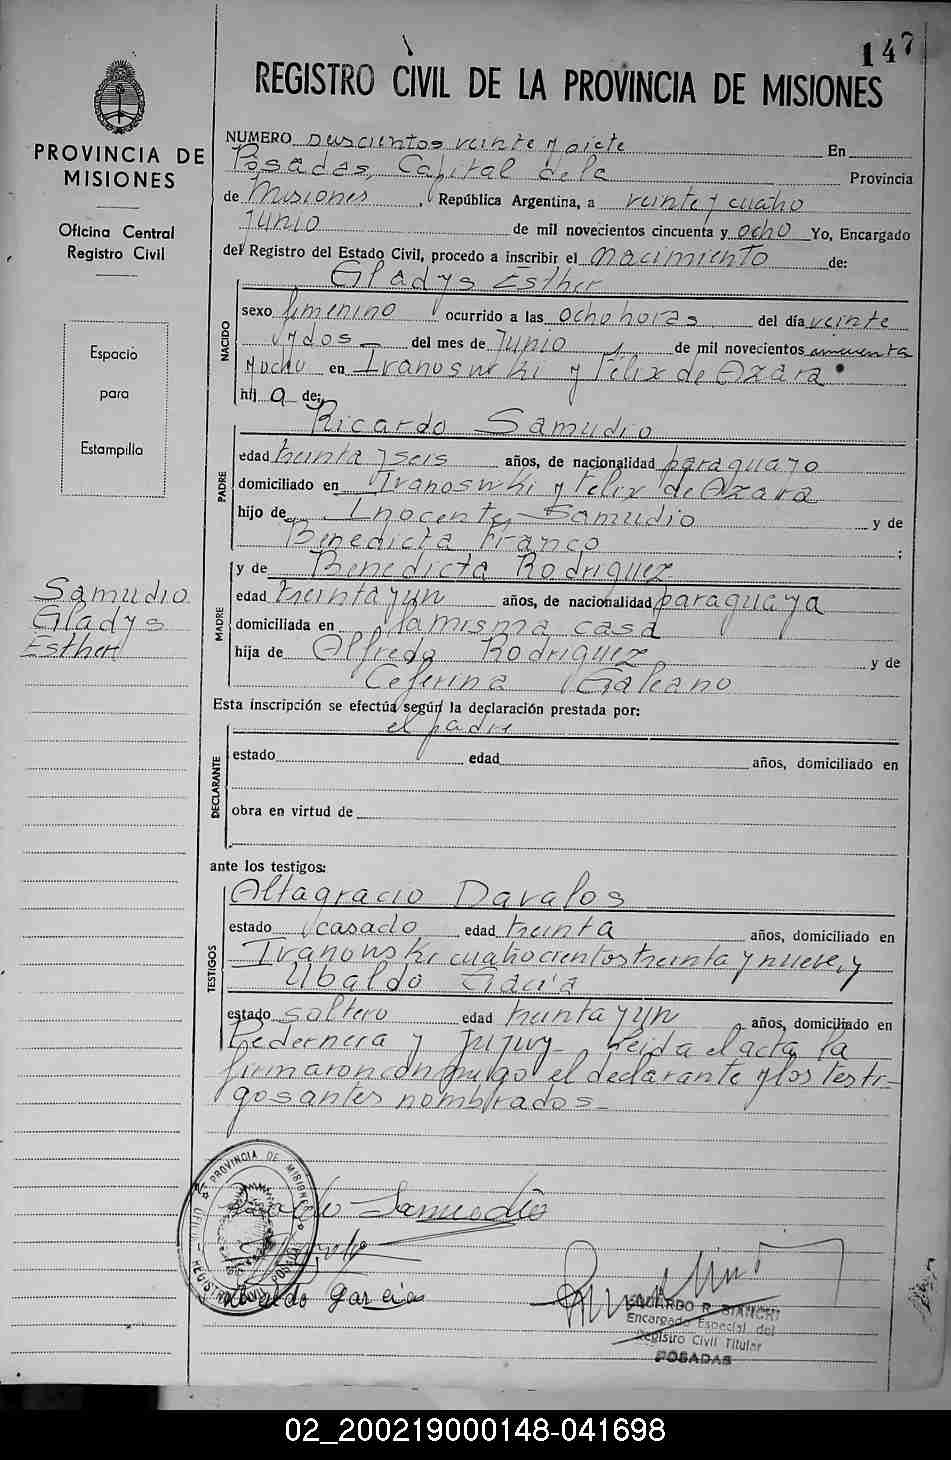 147
REGISTRO CIVIL DE LA PROVINCIA DE MISIONES
PROVINCIA DE
MISIONES
Oficina Central
Registro Civil
Espacio
para
Estampilla
Samudio
Gladys
Esther
NUMERO Duscientos veinte y siete En
Posadas, Capital de la Provincia
de Misiones, República Argentina, a veinte y cuatro
Junio de mil novecientos cincuenta y ocho Yo, Encargado
del Registro del Estado Civil, procedo a inscribir el nacimiento de:
NACIDO
Gladys Esther
sexo femenino ocurrido a las ocho horas del día veinte
y dos del mes de Junio de mil novecientos cincuenta
y ocho en Ivanoswki y Felix de Azara
hij a de:
PADRE
Ricardo Samudio
edad treinta y seis años, de nacionalidad paraguayo
domiciliado en Ivanoswki y Felix de Azara
hijo de Inocente Samudio y de
Benedicta Franco ;
MADRE
y de Benedicta Rodriguez
edad treinta y un años, de nacionalidad paraguaya
domiciliada en la misma casa
hija de Alfredo Rodriguez y de
Ceferina Galeano
Esta inscripción se efectúa según la declaración prestada por:
el padre
DECLARANTE
estado edad años, domiciliado en
obra en virtud de
ante los testigos:
TESTIGOS
Altagracio Davalos
estado casado edad treinta años, domiciliado en
Ivanowski cuatrocientos treinta y nueve, y
Ubaldo Gacia
estado soltero edad treinta y un años, domiciliado en
Pedernera y Jujuy leida el acta la
firmaron conmigo el declarante y los testi-
gos antes nombrados
PROVINCIA DE MISIONES
REGISTRO CIVIL POSADAS
Samudio
Ubaldo Garcia
EDUARDO R. BIANCHI
Encargado Especial del
Registro Civil Titular
POSADAS
02_200219000148-041698